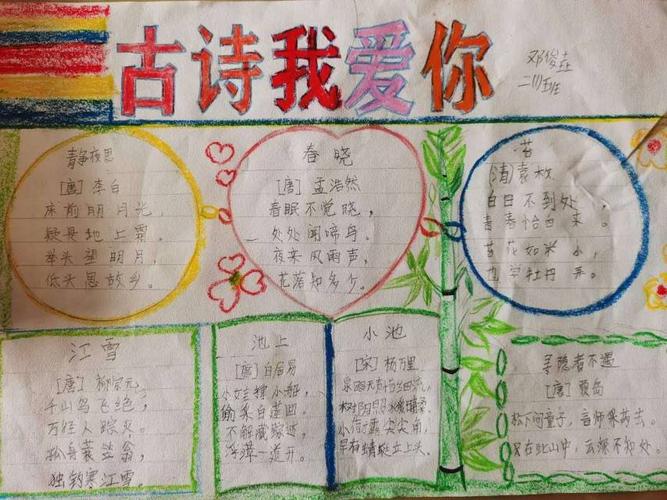 古诗我爱你
邓俊垚
二(1)班
静夜思
[唐] 李白
床前明月光，
疑是地上霜。
举头望明月，
低头思故乡。
春晓
[唐] 孟浩然
春眠不觉晓，
处处闻啼鸟。
夜来风雨声，
花落知多少。
苔
[清] 袁枚
白日不到处，
青春恰自来。
苔花如米小，
也学牡丹开。
江雪
[唐] 柳宗元
千山鸟飞绝，
万径人踪灭。
孤舟蓑笠翁，
独钓寒江雪。
池上
[唐] 白居易
小娃撑小船，
偷采白莲回
不解藏踪迹，
浮萍一道开。
小池
[宋] 杨万里
泉眼无声惜细流，
树阴照水爱晴柔。
小荷才露尖尖角，
早有蜻蜓立上头。
寻隐者不遇
[唐] 贾岛
松下问童子，言师采药去。
只在此山中，云深不知处。